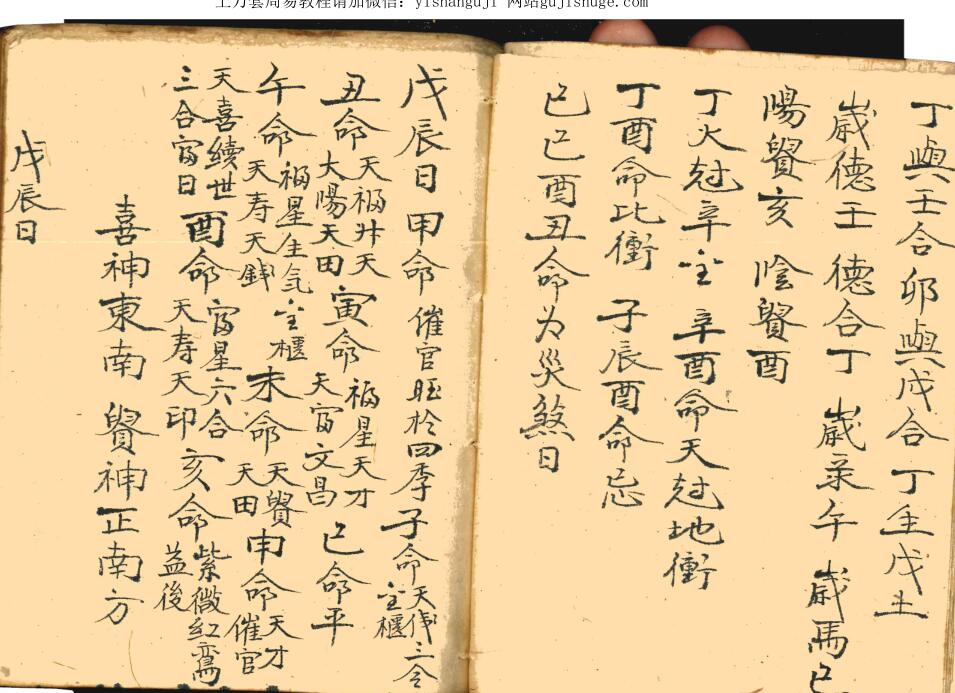 上万套周易教程请加微信：yishanguji 网站gujishuge.com
丁與壬合卯與戌合丁生戊土
歲德壬 德合丁 歲彔午 歲馬巳
陽貿亥 陰貿酉
丁火尅辛金 辛酉命天尅地衝
丁酉命比衝 子辰酉命忌
巳巳酉丑命为災煞日
戊辰日 甲命 催官旺於四季 子命 天德三合 金櫃
丑命 天福升天 大陽天田 寅命 福星天才 天富文昌 巳命平
午命 福星生気金櫃 天寿天錢 未命 天貿天田 申命 天才催官
天喜續世 三合富日 酉命 富星六合 天寿天印 亥命 紫微紅鸞 益後
喜神東南 貿神正南方
戊辰日